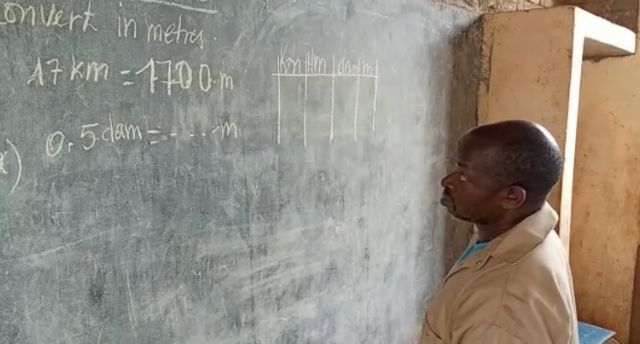 onvert in metres.
17 km = 1700 m
Km Hm dam m
a) 0.5 dam = - - - - m